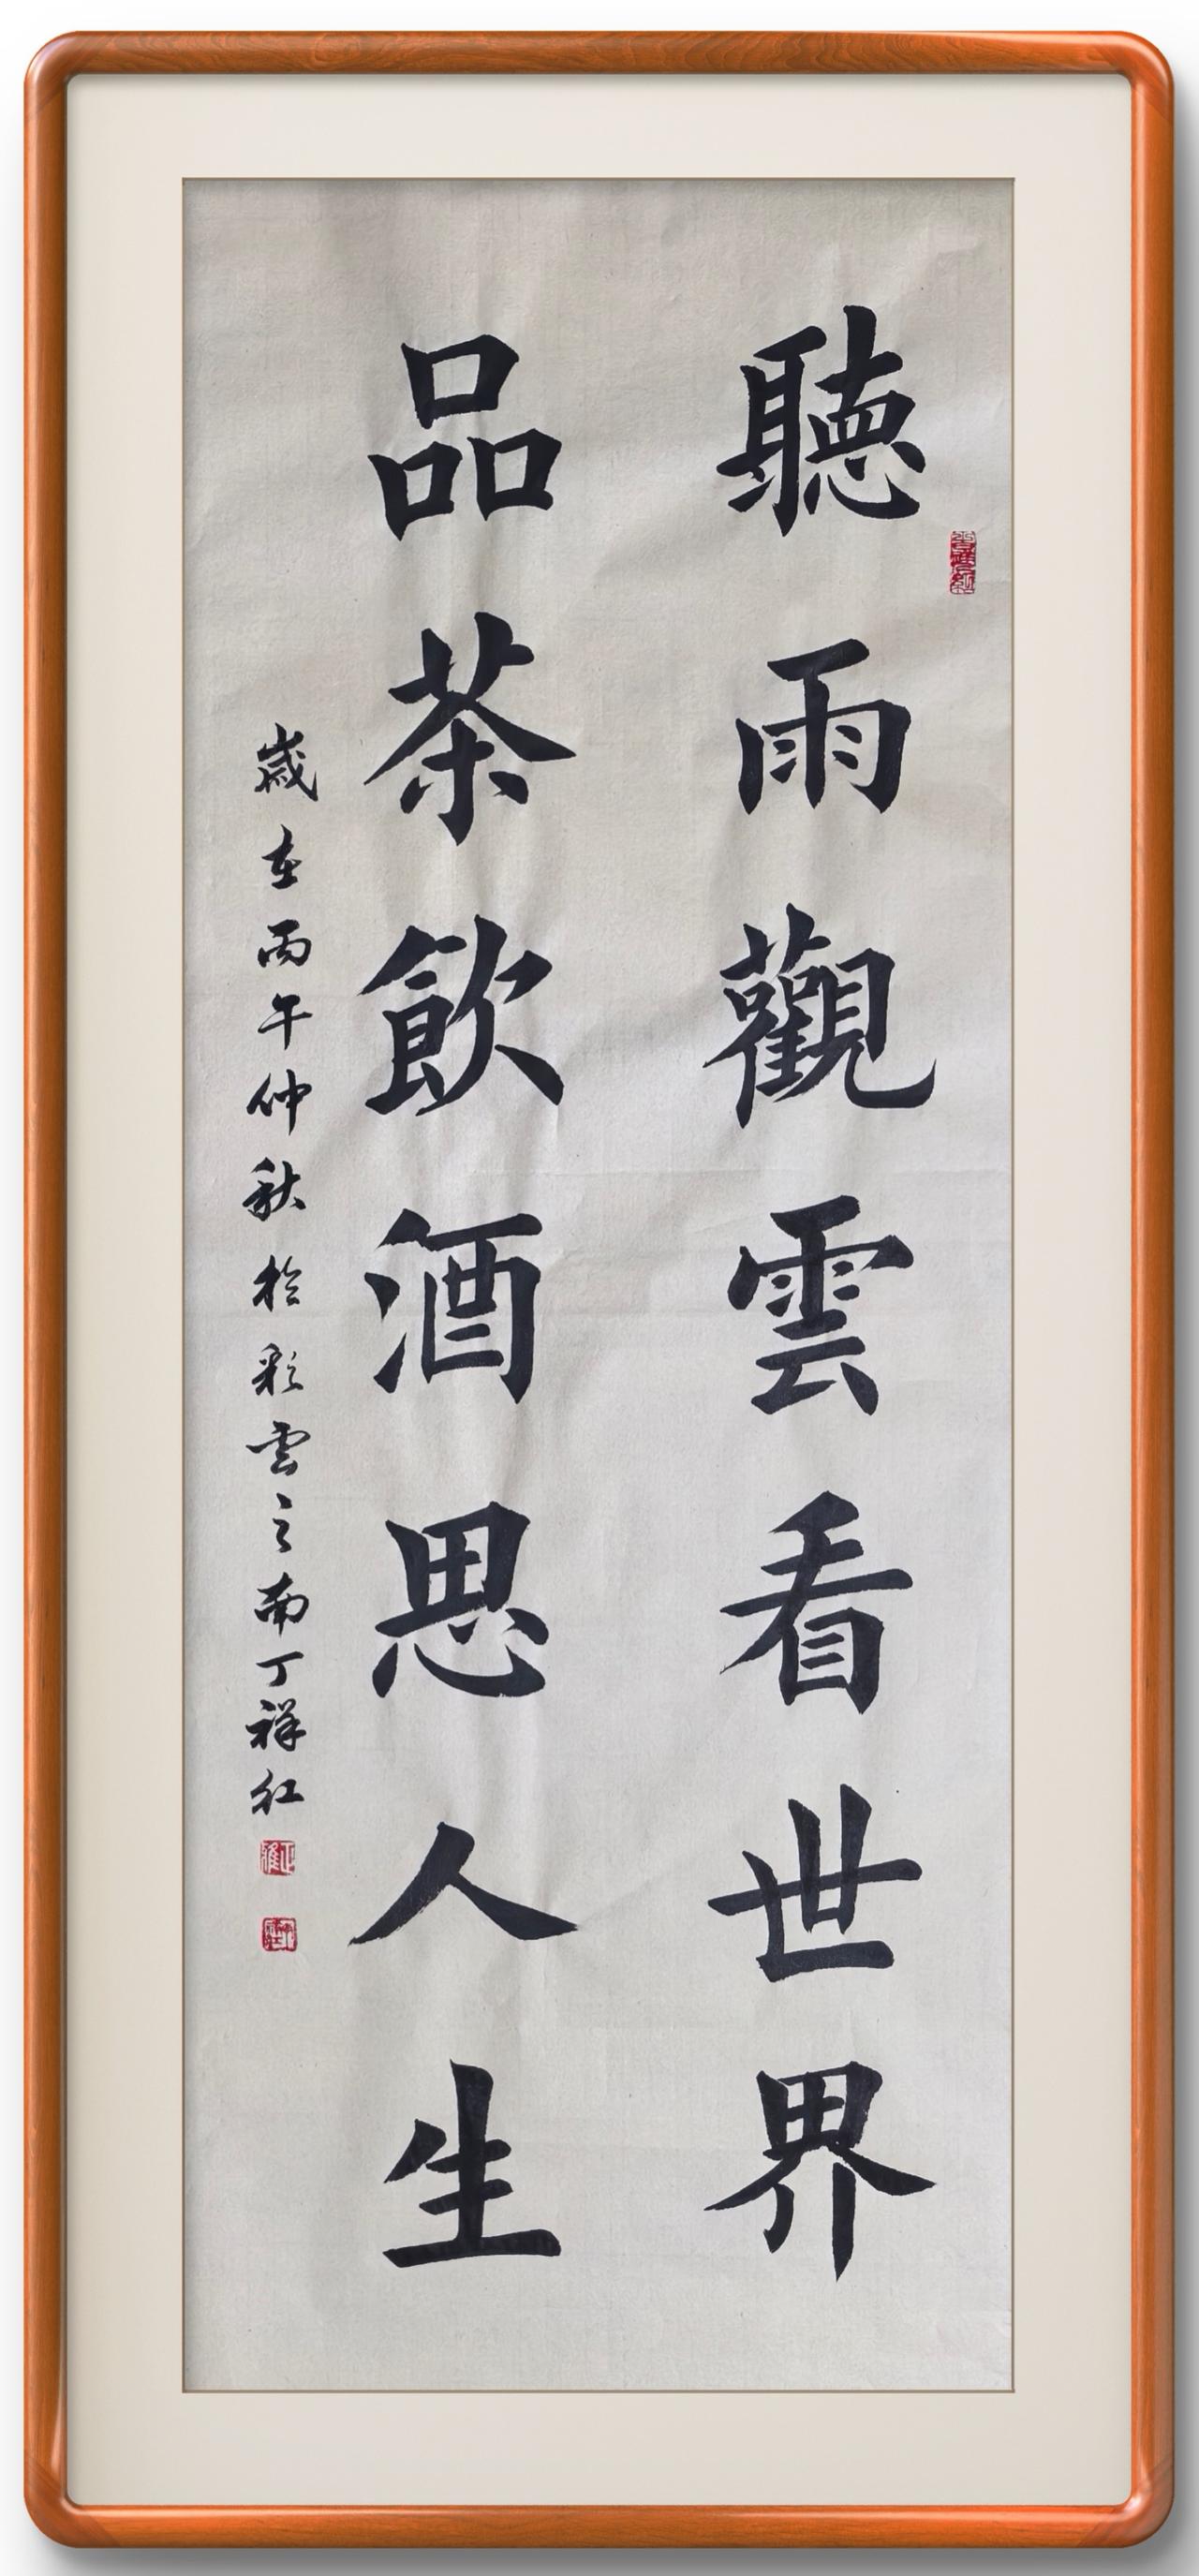 聽雨觀雲看世界
品茶飲酒思人生
歲在丙午仲秋於彩雲之南丁祥紅